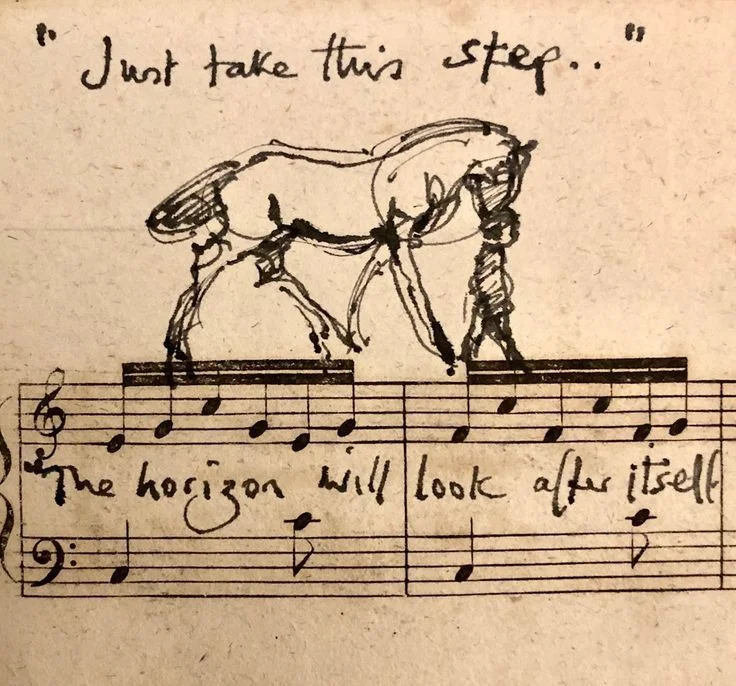 "Just take this step.."
"The horizon will look after itself